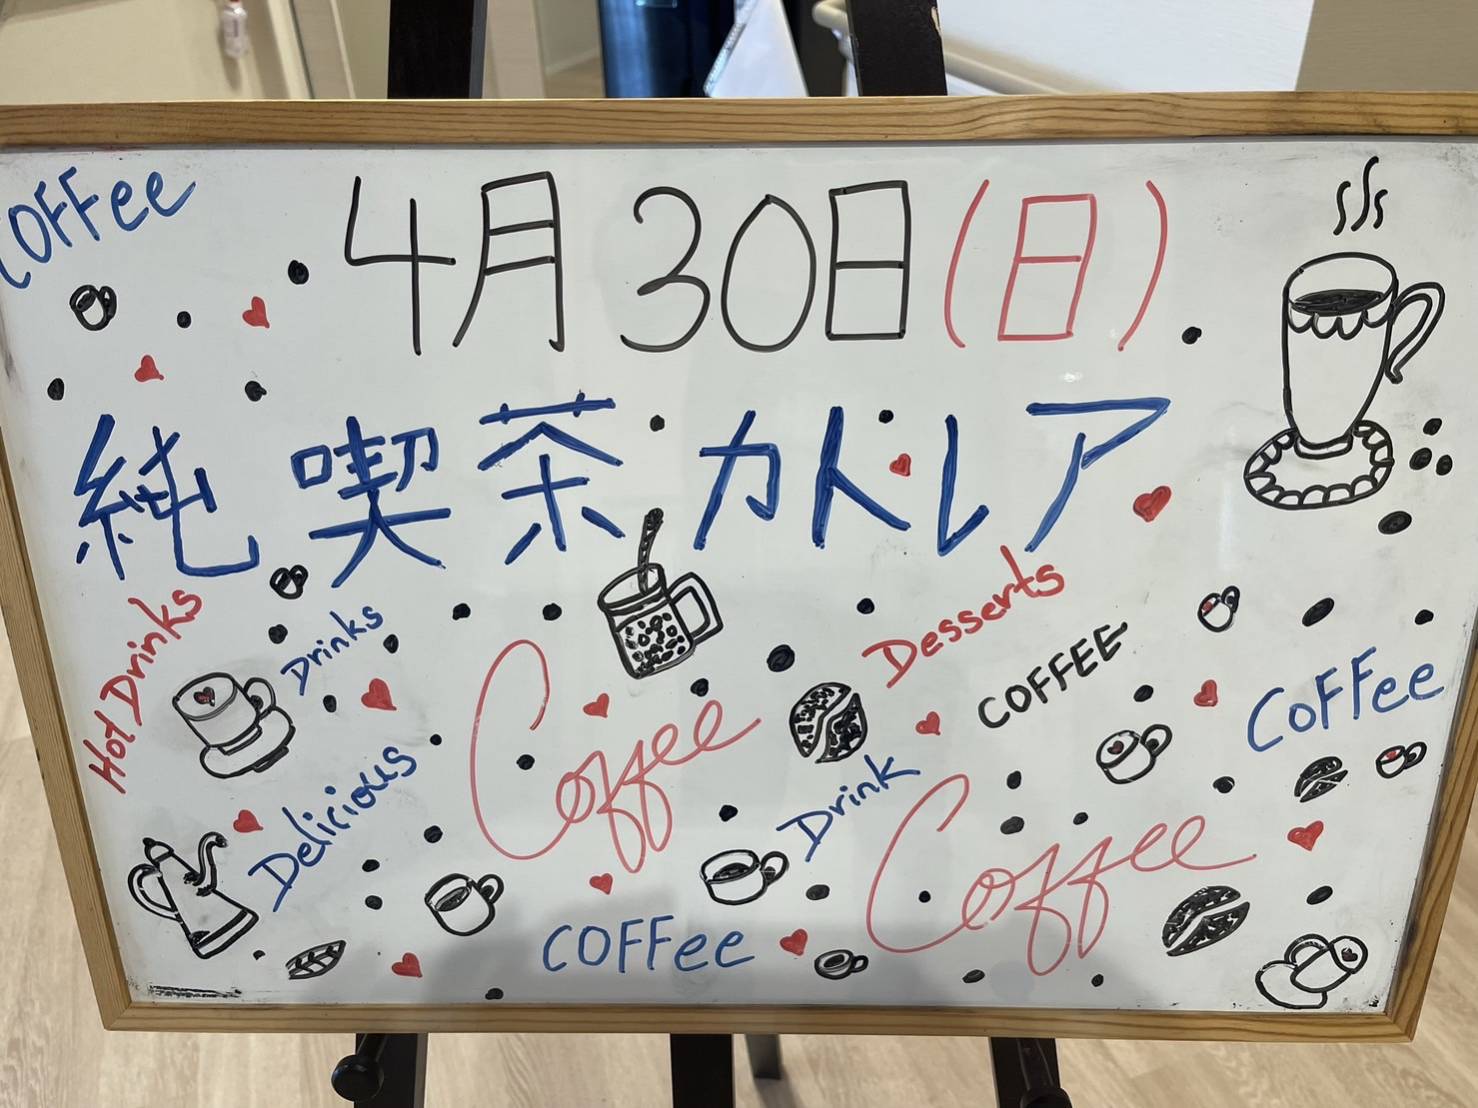 Coffee
4月30日(日)
純喫茶カトレア
Hot Drinks
Drinks
Desserts
COFFEE
Coffee
Coffee
Delicious
Drink
Coffee
Coffee